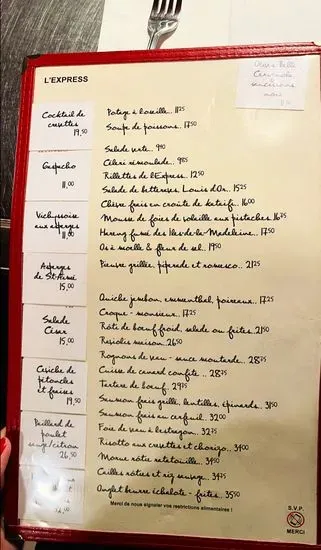 L'EXPRESS
Cocktail de
crevettes
19,50
Gaspacho
11,00
Vichyssoise
aux asperges
11,00
Asperges
de St-Amé
15,00
Salade
César
15,00
Ceviche de
pétoncles
et fraises
19,50
Paillard de
poulet
sauge/citron
26,50
Potage à l'oseille.. 11.25
Soupe de poissons.. 17.50
Salade verte.. 9.90
Céleri rémoulade.. 9.85
Rillettes de l'Express.. 12.50
Salade de betteraves, Louis d'Or.. 15.25
Chèvre frais en croûte de kataifi.. 16.00
Mousse de foies de volaille aux pistaches.. 16.75
Hareng fumé des Îles-de-la-Madeleine.. 17.50
Os à moelle & fleur de sel.. 19.50
Pieuvre grillée, piperade et romesco.. 21.25
Quiche jambon, emmenthal, poireaux.. 17.25
Croque-monsieur.. 17.25
Rôti de bœuf froid, salade ou frites.. 21.50
Ravioles maison.. 26.50
Rognons de veau - sauce moutarde.. 28.75
Cuisse de canard confite.. 28.75
Tartare de bœuf.. 29.75
Saumon frais grillé, lentilles, épinards.. 31.50
Saumon frais au cerfeuil.. 32.00
Foie de veau à l'estragon.. 32.75
Risotto aux crevettes et chorizo.. 34.00
Morue rôtie ratatouille.. 34.50
Cailles rôties et riz sauvage.. 34.75
Onglet beurre échalote - frites.. 35.50
Merci de nous signaler vos restrictions alimentaires !
S.V.P.
MERCI